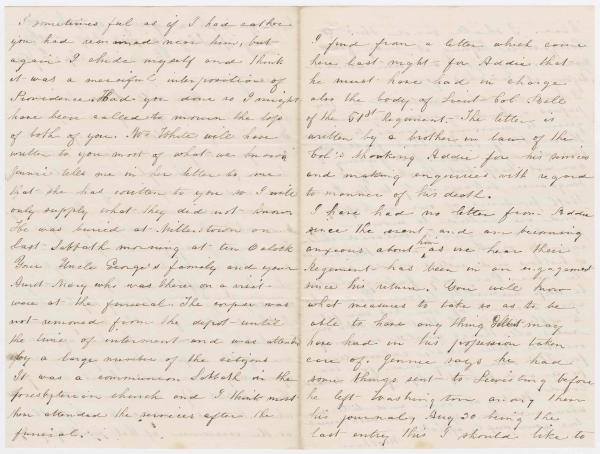 I sometimes feel as if I had rather
you had remained near him, but
again I chide myself and think
it was a merciful interposition of
Providence. Had you done so I might
have been called to mourn the loss
of both of you. Wm White will have
written to you most of what we know
Jennie tells me in her letter to me
that she has written to you so I will
only supply what they did not know
He was buried at Millerstown on
last Sabbath morning at ten Oclock
Your Uncle George's family and your
Aunt Mary who was there on a visit
were at the funeral. The corpse was
not removed from the depot until
the time of interment and was attended
by a large number of the citizens
It was a communion Sabbath in the
presbyterian church and I think most
attended the services after the
funeral.
I find from a letter which came
here last night for Addie that
he must have had in charge
also the body of Lieut Col Bell
of the 51st Regiment. The letter is
written by a brother in law of the
Col's thanking Addie for his services
and making enquiries with regard
to manner of his death.
I have had no letter from Addie
since the event and am becoming
anxious about him as we hear their
Regiment has been in an engagement
since his return. You will know
what measures to take so as to be
able to have any thing Ellis may
have had in his possession taken
care of. Jennie says he had
some things sent to Lewisburg before
he left Washington among them
his journal, Aug 30 being the
last entry this I should like to